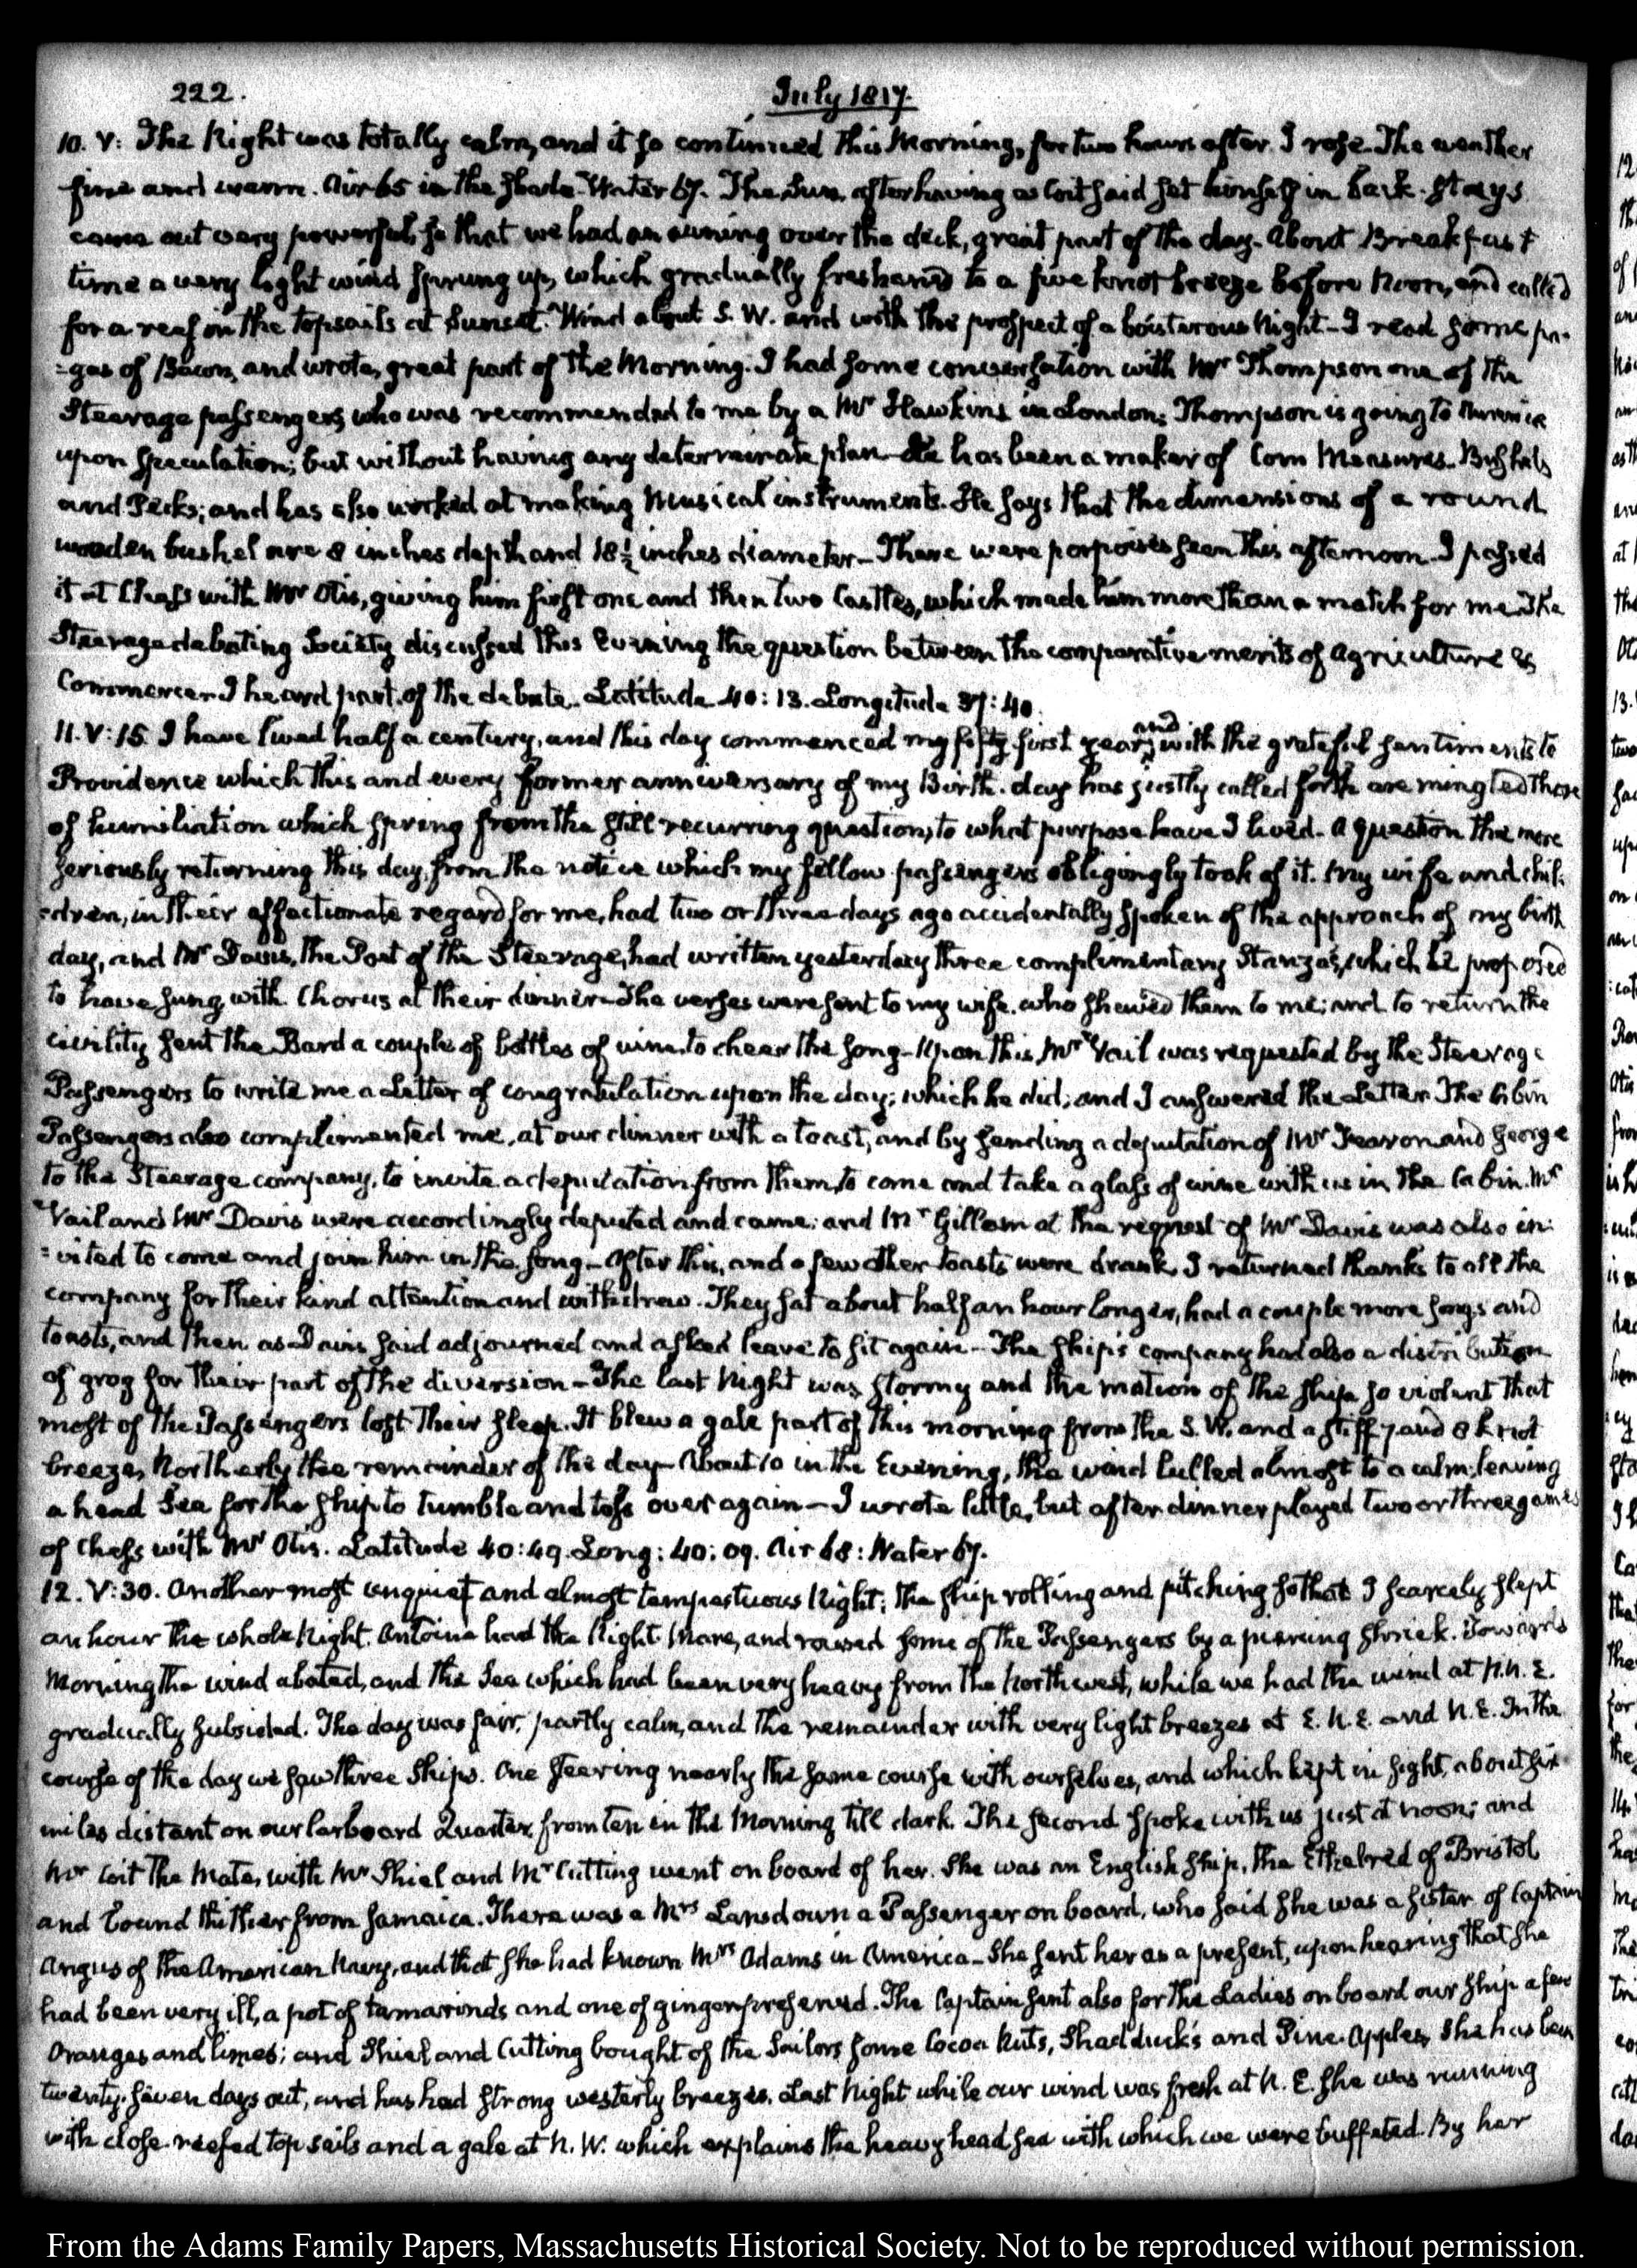 222.
July 1817.
10. V: The Night was totally calm, and it so continued this Morning, for two hours after I rose. The weather
fine and warm. Air 65 in the shade. Water 67. The Sun, after having as Coit said set himself in back-stays
came out very powerful, so that we had an awning over the deck, great part of the day. About Breakfast
time a very light wind sprung up, which gradually freshened to a five knot breeze before Noon, and called
for a reef in the topsails at Sunset. Wind about S. W. and with the prospect of a boisterous Night - I read some pa-
-ges of Bacon, and wrote, great part of the Morning. I had some conversation with Mr Thompson one of the
Steerage passengers, who was recommended to me by a Mr Hawkins in London. Thompson is going to America
upon speculation; but without having any determinate plan - He has been a maker of Corn Measures. Bushels
and Pecks; and has also worked at making Musical instruments. He says that the dimensions of a round
wooden bushel are 8 inches depth and 18½ inches diameter - There were porpoises seen this afternoon. I passed
it at Chess with Mr Otis, giving him first one and then two Castles, which made him more than a match for me. The
Steerage debating Society discussed this Evening the question between the comparative merits of Agriculture &
Commerce. I heard part of the debate. Latitude 40:13. Longitude 37:40.
11. V:15. I have lived half a century, and this day commenced my fifty-first year; and with the grateful sentiments to
Providence which this and every former anniversary of my Birth-day has justly called forth are mingled those
of humiliation which spring from the still recurring question, to what purpose have I lived. A question the more
seriously returning this day, from the notice which my fellow passengers obligingly took of it. My wife and chil-
-dren, in their affectionate regard for me, had two or three days ago accidentally spoken of the approach of my birth
day, and Mr Davis, the Poet of the Steerage, had written yesterday three complimentary Stanza's, which he proposed
to have sung, with Chorus at their dinner. The verses were sent to my wife, who shewed them to me; and to return the
civility sent the Bard a couple of bottles of wine, to cheer the song - Upon this, Mr Vail was requested by the Steerage
Passengers to write me a Letter of congratulation upon the day; which he did; and I answered the Letter. The Cabin
Passengers also complimented me, at our dinner with a toast, and by sending a deputation of Mr Fearon and George
to the Steerage company, to invite a deputation from them, to come and take a glass of wine with us in the Cabin. Mr
Vail and Mr Davis were accordingly deputed and came; and Mr Gillam at the request of Mr Davis was also in-
-vited to come and join him in the song - After this, and a few other toasts were drank, I returned thanks to all the
company for their kind attention and withdrew. They sat about half an hour longer, had a couple more songs and
toasts, and then as Davis said adjourned and asked leave to sit again - The ship's company had also a distribution
of grog for their part of the diversion - The last Night was stormy and the motion of the ship so violent that
most of the Passengers lost their sleep. It blew a gale part of this morning from the S. W. and a stiff 7 and 8 knot
breeze, Northerly the remainder of the day - About 10 in the Evening, the wind lulled almost to a calm; leaving
a head Sea for the ship to tumble and toss over again - I wrote little, but after dinner played two or three games
of Chess with Mr Otis. Latitude 40:49. Long: 40:09. Air 68: Water 67.
12. V:30. Another most unquiet and almost tempestuous Night; the ship rolling and pitching so that I scarcely slept
an hour the whole Night. Antoine had the Night Mare, and roused some of the Passengers by a piercing shriek. Towards
Morning the wind abated, and the Sea which had been very heavy from the Northwest, while we had the wind at N.N.E.
gradually subsided. The day was fair, partly calm, and the remainder with very light breezes at E.N.E. and N.E. In the
course of the day we saw three Ships. One steering nearly the same course with ourselves, and which kept in sight, about six
miles distant on our larboard Quarter, from ten in the Morning till dark. The second spoke with us just at noon; and
Mr Coit the Mate, with Mr Shiel and Mr Cutting went on board of her. She was an English ship, the Ethelred of Bristol
and bound thither from Jamaica. There was a Mrs Lansdown a Passenger on board, who said she was a sister of Captain
Angus of the American Navy, and that she had known Mrs Adams in America - She sent her as a present, upon hearing that she
had been very ill, a pot of tamarinds and one of ginger preserved. The Captain sent also for the Ladies on board our ship a few
Oranges and limes; and Shiel and Cutting bought of the Sailors some Cocoa Nuts, Shadducks and Pine-Apples. She has been
twenty-seven days out, and has had strong westerly breezes. Last Night while our wind was fresh at N. E. she was running
with close-reefed topsails and a gale at N. W. which explains the heavy head sea with which we were buffeted. By her
From the Adams Family Papers, Massachusetts Historical Society. Not to be reproduced without permission.